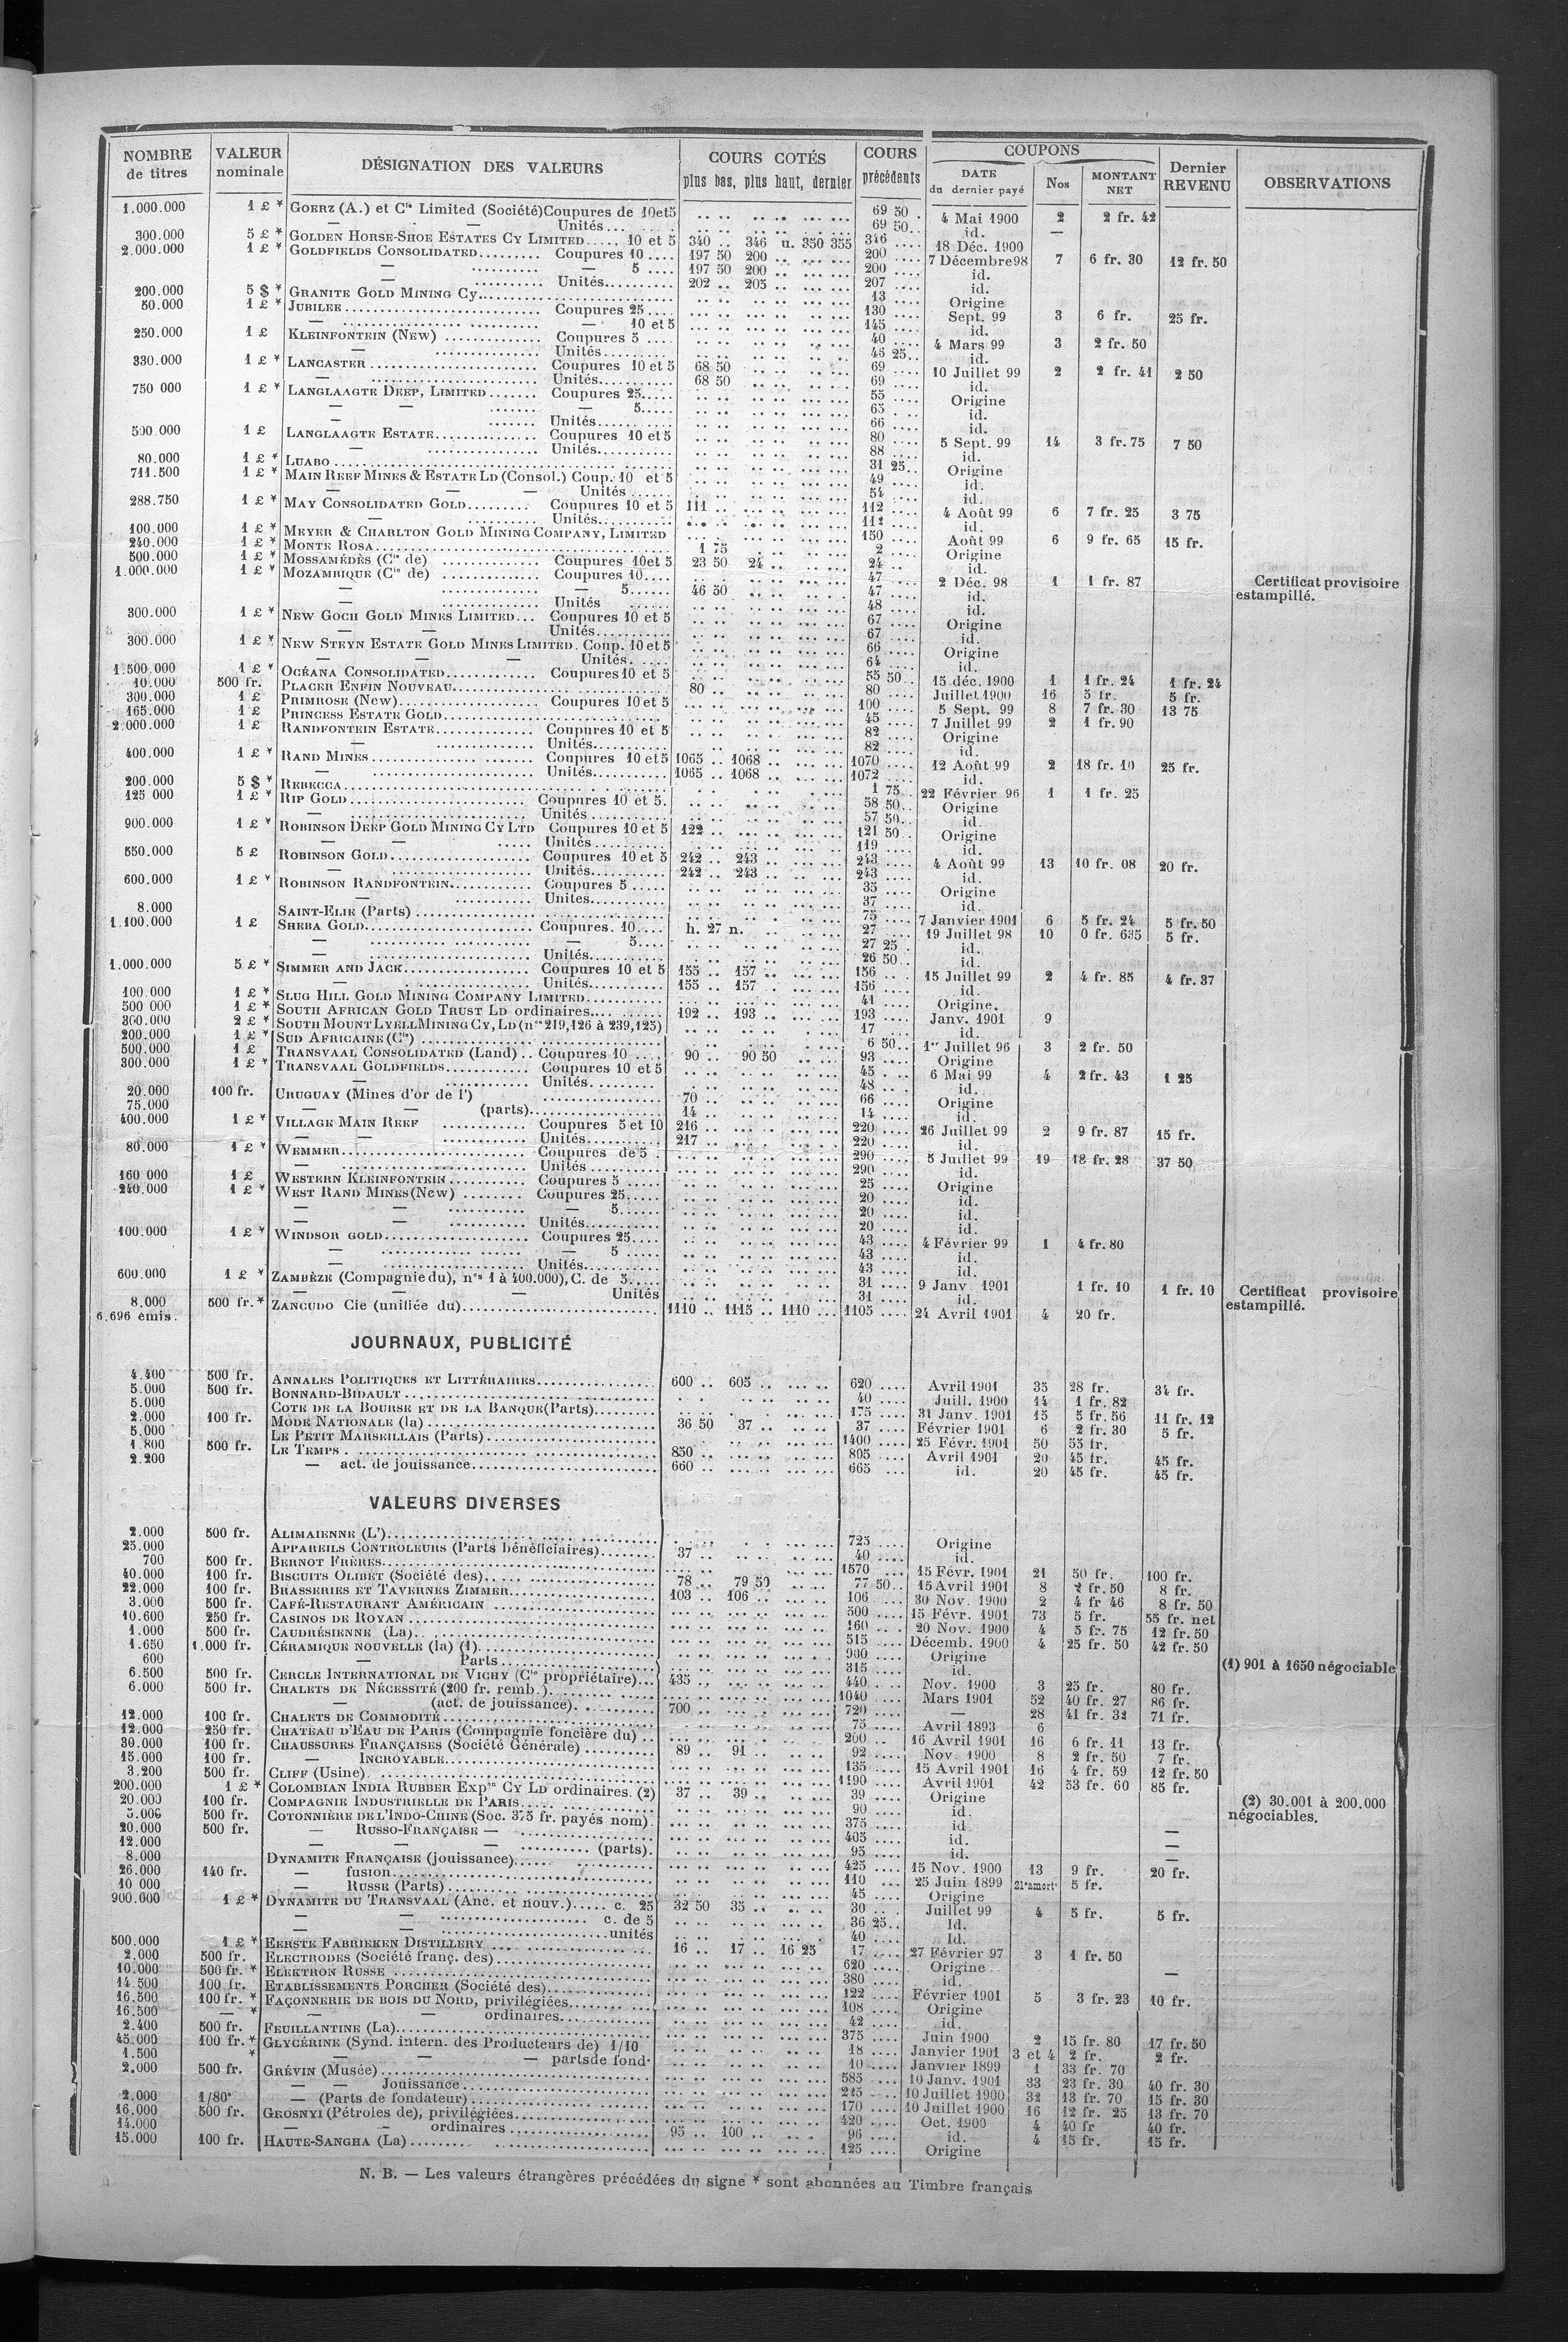 NOMBRE de titres | VALEUR nominale | DÉSIGNATION DES VALEURS | COURS COTÉS plus bas, plus haut, dernier | COURS précédents | COUPONS DATE du dernier payé | Nos | MONTANT NET | Dernier REVENU | OBSERVATIONS
1.000.000 1 £ * GOERZ (A.) et Cie Limited (Société) Coupures de 10et5 69 50 4 Mai 1900 2 2 fr. 42
— — Unités 69 50 id. —
300.000 5 £ * GOLDEN HORSE-SHOE ESTATES CY LIMITED 10 et 5 340 346 u. 350 355 346 18 Déc. 1900
2.000.000 1 £ * GOLDFIELDS CONSOLIDATED Coupures 10 197 50 200 200 7 Décembre98 7 6 fr. 30 12 fr. 50
— — 5 197 50 200 200 id.
— Unités 202 205 207 id.
200.000 5 $ * GRANITE GOLD MINING Cy. 13 Origine
50.000 1 £ * JUBILEE Coupures 25 130 Sept. 99 3 6 fr. 25 fr.
— — 10 et 5 145 id.
250.000 1 £ KLEINFONTEIN (New) Coupures 5 40 4 Mars 99 3 2 fr. 50
— Unités 46 25 id.
330.000 1 £ * LANCASTER Coupures 10 et 5 68 50 69 10 Juillet 99 2 2 fr. 41 2 50
— Unités 68 50 69 id.
750 000 1 £ * LANGLAAGTE DEEP, LIMITED Coupures 25 55 Origine
— — — 5 65 id.
— Unités 66 id.
500.000 1 £ LANGLAAGTE ESTATE Coupures 10 et 5 80 5 Sept. 99 14 3 fr. 75 7 50
— Unités 88 id.
80.000 1 £ * LUABO 31 25 Origine
711.500 1 £ * MAIN REEF MINES & ESTATE LD (Consol.) Coup. 10 et 5 49 id.
— — — Unités 54 id.
288.750 1 £ * MAY CONSOLIDATED GOLD Coupures 10 et 5 111 112 4 Août 99 6 7 fr. 25 3 75
— Unités 112 id.
100.000 1 £ * MEYER & CHARLTON GOLD MINING COMPANY, LIMITED 150 Août 99 6 9 fr. 65 15 fr.
240.000 1 £ * MONTE ROSA 1 75 2 Origine
500.000 1 £ * MOSSAMÉDÈS (Cie de) Coupures 10et 5 23 50 24 24 id.
1.000.000 1 £ * MOZAMBIQUE (Cie de) Coupures 10 47 2 Déc. 98 1 1 fr. 87 Certificat provisoire estampillé.
— — 5 46 50 47 id.
— Unités 48 id.
300.000 1 £ * NEW GOCH GOLD MINES LIMITED Coupures 10 et 5 67 Origine
— — Unités 67 id.
300.000 1 £ * NEW STEYN ESTATE GOLD MINES LIMITED. Coup. 10 et 5 66 Origine
— — — Unités 64 id.
1.500.000 1 £ * OCÉANA CONSOLIDATED Coupures 10 et 5 55 50 15 déc. 1900 1 1 fr. 24 1 fr. 24
10.000 500 fr. PLACER ENFIN NOUVEAU 80 80 Juillet 1900 16 5 fr. 5 fr.
300.000 1 £ PRIMROSE (New) Coupures 10 et 5 100 5 Sept. 99 8 7 fr. 30 13 75
165.000 1 £ PRINCESS ESTATE GOLD 45 7 Juillet 99 2 1 fr. 90
2.000.000 1 £ RANDFONTEIN ESTATE Coupures 10 et 5 82 Origine
— Unités 82 id.
400.000 1 £ * RAND MINES Coupures 10 et 5 1065 1068 1070 12 Août 99 2 18 fr. 10 25 fr.
— Unités 1065 1068 1072 id.
200.000 5 $ * REBECCA 1 75 22 Février 96 1 1 fr. 25
125 000 1 £ * RIP GOLD Coupures 10 et 5. 58 50 Origine
— Unités 57 50 id.
900.000 1 £ * ROBINSON DEEP GOLD MINING CY LTD Coupures 10 et 5 122 121 50 Origine
— — Unités 119 id.
550.000 5 £ ROBINSON GOLD Coupures 10 et 5 242 243 243 4 Août 99 13 10 fr. 08 20 fr.
— Unités 242 243 243 id.
600.000 1 £ * ROBINSON RANDFONTEIN Coupures 5 35 Origine
— Unités 37 id.
8.000 SAINT-ELIE (Parts) 75 7 Janvier 1901 6 5 fr. 24 5 fr. 50
1.100.000 1 £ SHEBA GOLD Coupures. 10 h. 27 n. 27 19 Juillet 98 10 0 fr. 635 5 fr.
— — 5 27 25 id.
— Unités 26 50 id.
1.000.000 5 £ * SIMMER AND JACK Coupures 10 et 5 155 157 156 15 Juillet 99 2 4 fr. 85 4 fr. 37
— Unités 155 157 156 id.
100.000 1 £ * SLUG HILL GOLD MINING COMPANY LIMITED 41 Origine.
500 000 1 £ * SOUTH AFRICAN GOLD TRUST LD ordinaires 192 193 193 Janv. 1901 9
300.000 2 £ * SOUTH MOUNT LYELL MINING CY, LD (nos 219,126 à 239,125) 17 id.
200.000 1 £ * SUD AFRICAINE (Cie) 6 50 1er Juillet 96 3 2 fr. 50
500.000 1 £ TRANSVAAL CONSOLIDATED (Land) Coupures 10 90 90 50 93 Origine
300.000 1 £ * TRANSVAAL GOLDFIELDS Coupures 10 et 5 45 6 Mai 99 4 2 fr. 43 1 25
— Unités 48 id.
20.000 100 fr. URUGUAY (Mines d'or de l') 70 66 Origine
75.000 — — (parts) 14 14 id.
400.000 1 £ * VILLAGE MAIN REEF Coupures 5 et 10 216 220 26 Juillet 99 2 9 fr. 87 15 fr.
— — Unités 217 220 id.
80.000 1 £ * WEMMER Coupures de 5 290 5 Juillet 99 19 18 fr. 28 37 50
— Unités 290 id.
160 000 1 £ WESTERN KLEINFONTEIN Coupures 5 25 Origine
240.000 1 £ * WEST RAND MINES (New) Coupures 25 20 id.
— — — 5 20 id.
— — Unités 20 id.
100.000 1 £ * WINDSOR GOLD Coupures 25 43 4 Février 99 1 4 fr. 80
— — 5 43 id.
— Unités 43 id.
600.000 1 £ * ZAMBÈZE (Compagnie du), nos 1 à 400.000), C. de 5 31 9 Janv 1901 1 fr. 10 1 fr. 10 Certificat provisoire estampillé.
— — — Unités 31 id.
8.000 500 fr. * ZANCUDO Cie (unifiée du) 1110 1115 1110 1105 24 Avril 1901 4 20 fr.
6.696 émis.
JOURNAUX, PUBLICITÉ
4.400 500 fr. ANNALES POLITIQUES ET LITTÉRAIRES 600 605 620 Avril 1901 35 28 fr. 34 fr.
5.000 500 fr. BONNARD-BIDAULT 40 Juill. 1900 14 1 fr. 82
5.000 COTE DE LA BOURSE ET DE LA BANQUE (Parts) 175 31 Janv. 1901 15 5 fr. 56 11 fr. 12
2.000 100 fr. MODE NATIONALE (la) 36 50 37 37 Février 1901 6 2 fr. 30 5 fr.
5.000 LE PETIT MARSEILLAIS (Parts) 1400 25 Févr. 1901 50 55 fr.
1.800 500 fr. LE TEMPS 850 805 Avril 1901 20 45 fr. 45 fr.
2.200 — act. de jouissance 660 665 id. 20 45 fr. 45 fr.
VALEURS DIVERSES
2.000 500 fr. ALIMAIENNE (L') 725 Origine
25.000 APPAREILS CONTROLEURS (Parts bénéficiaires) 37 40 id.
700 500 fr. BERNOT FRÈRES 1570 15 Févr. 1901 21 50 fr. 100 fr.
40.000 100 fr. BISCUITS OLIBET (Société des) 78 79 50 77 50 15 Avril 1901 8 2 fr. 50 8 fr.
22.000 100 fr. BRASSERIES ET TAVERNES ZIMMER 103 106 106 30 Nov. 1900 2 4 fr 46 8 fr. 50
3.000 500 fr. CAFÉ-RESTAURANT AMÉRICAIN 500 15 Févr. 1901 73 5 fr. 55 fr. net
10.600 250 fr. CASINOS DE ROYAN 160 20 Nov. 1900 4 5 fr. 75 12 fr. 50
1.000 500 fr. CAUDRÉSIENNE (La) 515 Décemb. 1900 4 25 fr. 50 42 fr. 50
1.650 1.000 fr. CÉRAMIQUE NOUVELLE (la) (1) 900 Origine (1) 901 à 1650 négociable
600 — Parts 315 id.
6.500 500 fr. CERCLE INTERNATIONAL DE VICHY (Cie propriétaire) 435 440 Nov. 1900 3 25 fr. 80 fr.
6.000 500 fr. CHALETS DE NÉCESSITÉ (200 fr. remb.) 1040 Mars 1901 52 40 fr. 27 86 fr.
— (act. de jouissance) 700 720 — 28 41 fr. 32 71 fr.
12.000 100 fr. CHALETS DE COMMODITÉ 75 Avril 1893 6
12.000 250 fr. CHATEAU D'EAU DE PARIS (Compagnie foncière du) 200 16 Avril 1901 16 6 fr. 11 13 fr.
30.000 100 fr. CHAUSSURES FRANÇAISES (Société Générale) 89 91 92 Nov. 1900 8 2 fr. 50 7 fr.
15.000 100 fr. — INCROYABLE 135 15 Avril 1901 16 4 fr. 59 12 fr. 50
3.200 500 fr. CLIFF (Usine) 1190 Avril 1901 42 53 fr. 60 85 fr.
200.000 1 £ * COLOMBIAN INDIA RUBBER Expon CY LD ordinaires. (2) 37 39 39 Origine (2) 30.001 à 200.000 négociables.
20.000 100 fr. COMPAGNIE INDUSTRIELLE DE PARIS 90 id.
500 fr. COTONNIÈRE DE L'INDO-CHINE (Soc. 375 fr. payés nom) 375 id.
20.000 500 fr. — RUSSO-FRANÇAISE — 405 id. —
12.000 — — — (parts). 95 id. —
8.000 DYNAMITE FRANÇAISE (jouissance) 425 15 Nov. 1900 13 9 fr. 20 fr.
26.000 140 fr. — fusion 110 25 Juin 1899 21eamort 5 fr.
10 000 — RUSSE (Parts) 45 Origine
900.000 1 £ * DYNAMITE DU TRANSVAAL (Anc. et nouv.) c. 25 32 50 35 30 Juillet 99 4 5 fr. 5 fr.
— — c. de 5 36 25 Id.
— — unités 40 Id.
500.000 1 £ * EERSTE FABRIEKEN DISTILLERY 16 17 16 25 17 27 Février 97 3 1 fr. 50
2.000 500 fr. ELECTRODES (Société franç. des) 620 Origine
10.000 500 fr. * ELEKTRON RUSSE 380 id. —
14.500 100 fr. ETABLISSEMENTS PORCHER (Société des) 122 Février 1901 5 3 fr. 23 10 fr.
16.500 100 fr. * FAÇONNERIE DE BOIS DU NORD, privilégiées 108 Origine
16.500 — * — — ordinaires 42 id.
2.400 500 fr. FEUILLANTINE (La) 375 Juin 1900 2 15 fr. 80 17 fr. 50
45.000 100 fr. * GLYCÉRINE (Synd. intern. des Producteurs de) 1/10 18 Janvier 1901 3 et 4 2 fr. 2 fr.
1.500 * — — — parts de fond. 10 Janvier 1899 1 33 fr. 70
2.000 500 fr. GRÉVIN (Musée) 585 10 Janv. 1901 33 23 fr. 30 40 fr. 30
— — Jouissance 245 10 Juillet 1900 32 13 fr. 70 15 fr. 30
2.000 1/80e — (Parts de fondateur) 170 10 Juillet 1900 16 12 fr. 25 13 fr. 70
16.000 500 fr. GROSNYI (Pétroles de), privilégiées 420 Oct. 1900 4 40 fr 40 fr.
14.000 — — ordinaires 95 100 96 id. 4 15 fr. 15 fr.
15.000 100 fr. HAUTE-SANGHA (La) 125 Origine
N. B. — Les valeurs étrangères précédées du signe * sont abonnées au Timbre français